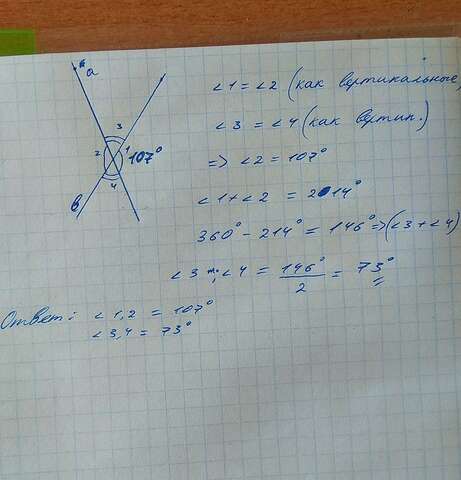 a
3
2 1 107°
4
b
∠1 = ∠2 (как вертикальные)
∠3 = ∠4 (как вертик.)
=> ∠2 = 107°
∠1 + ∠2 = 214°
360° - 214° = 146° => (∠3 + ∠4)
∠3 ; ∠4 = 146°/2 = 73°
Ответ: ∠1,2 = 107°
∠3,4 = 73°